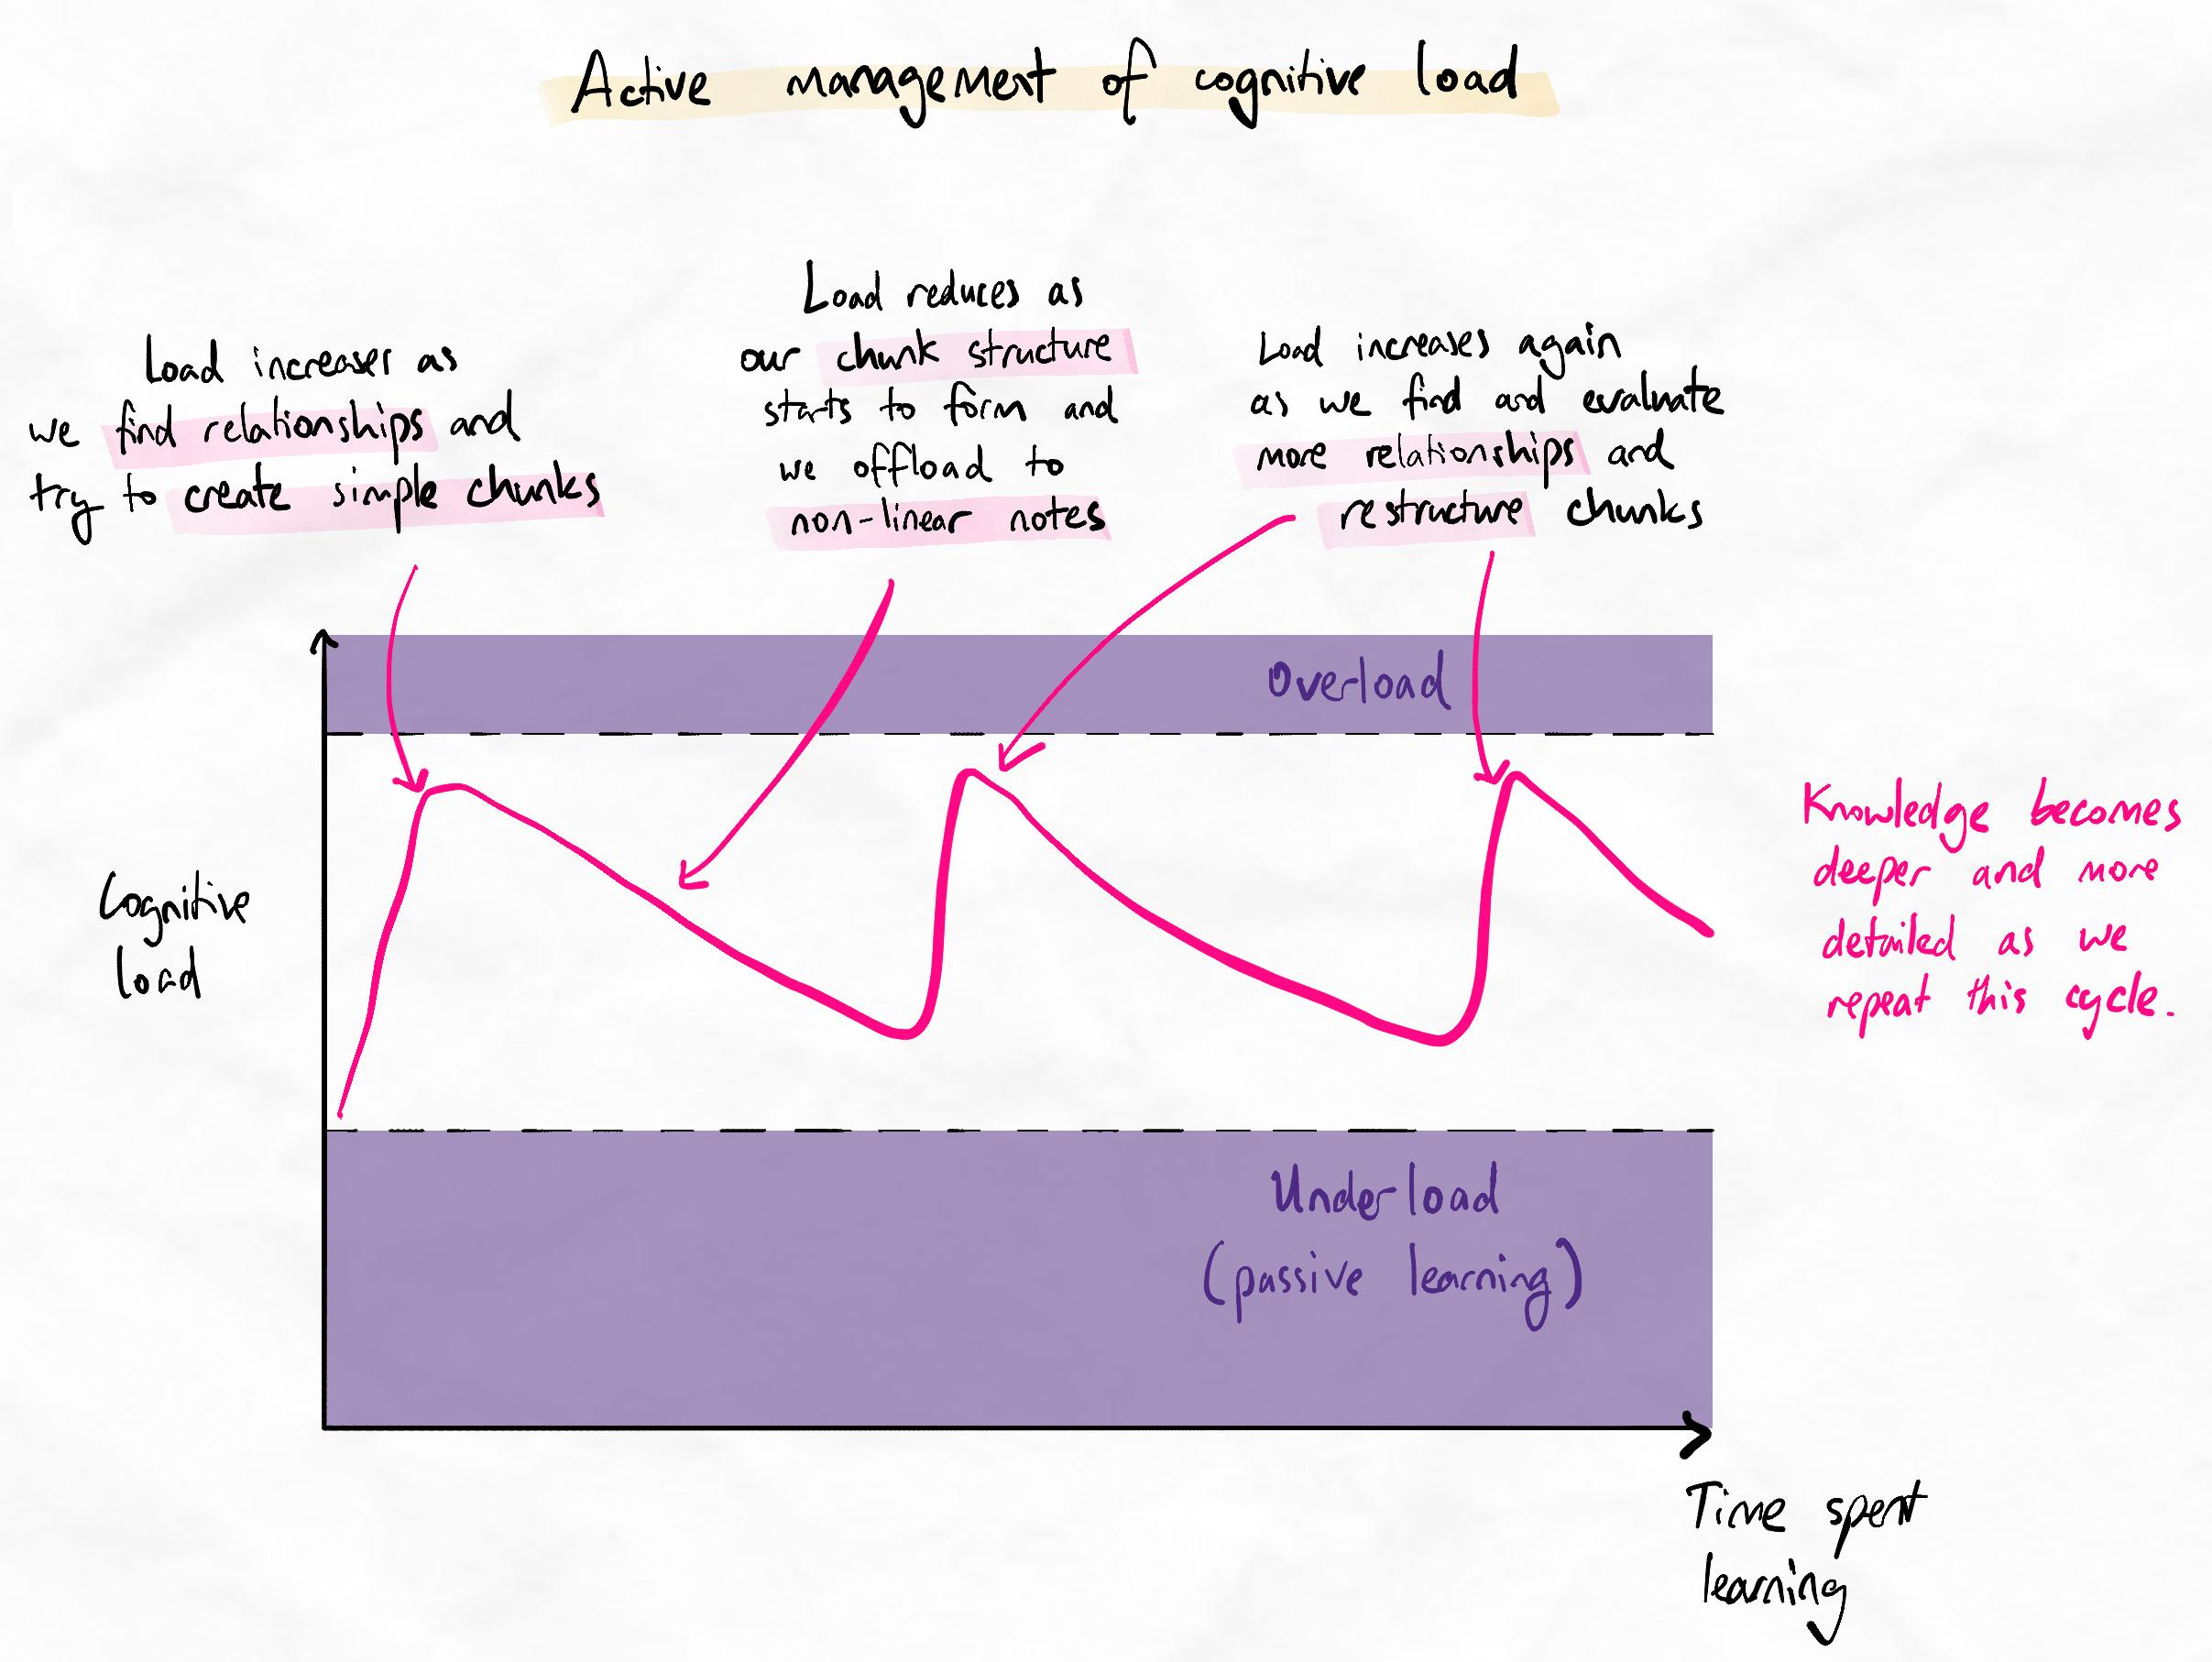 Active management of cognitive load
Load increases as
we find relationships and
try to create simple chunks
Load reduces as
our chunk structure
starts to form and
we offload to
non-linear notes
Load increases again
as we find and evaluate
more relationships and
restructure chunks
Overload
Cognitive
load
Knowledge becomes
deeper and more
detailed as we
repeat this cycle.
Underload
(passive learning)
Time spent
learning